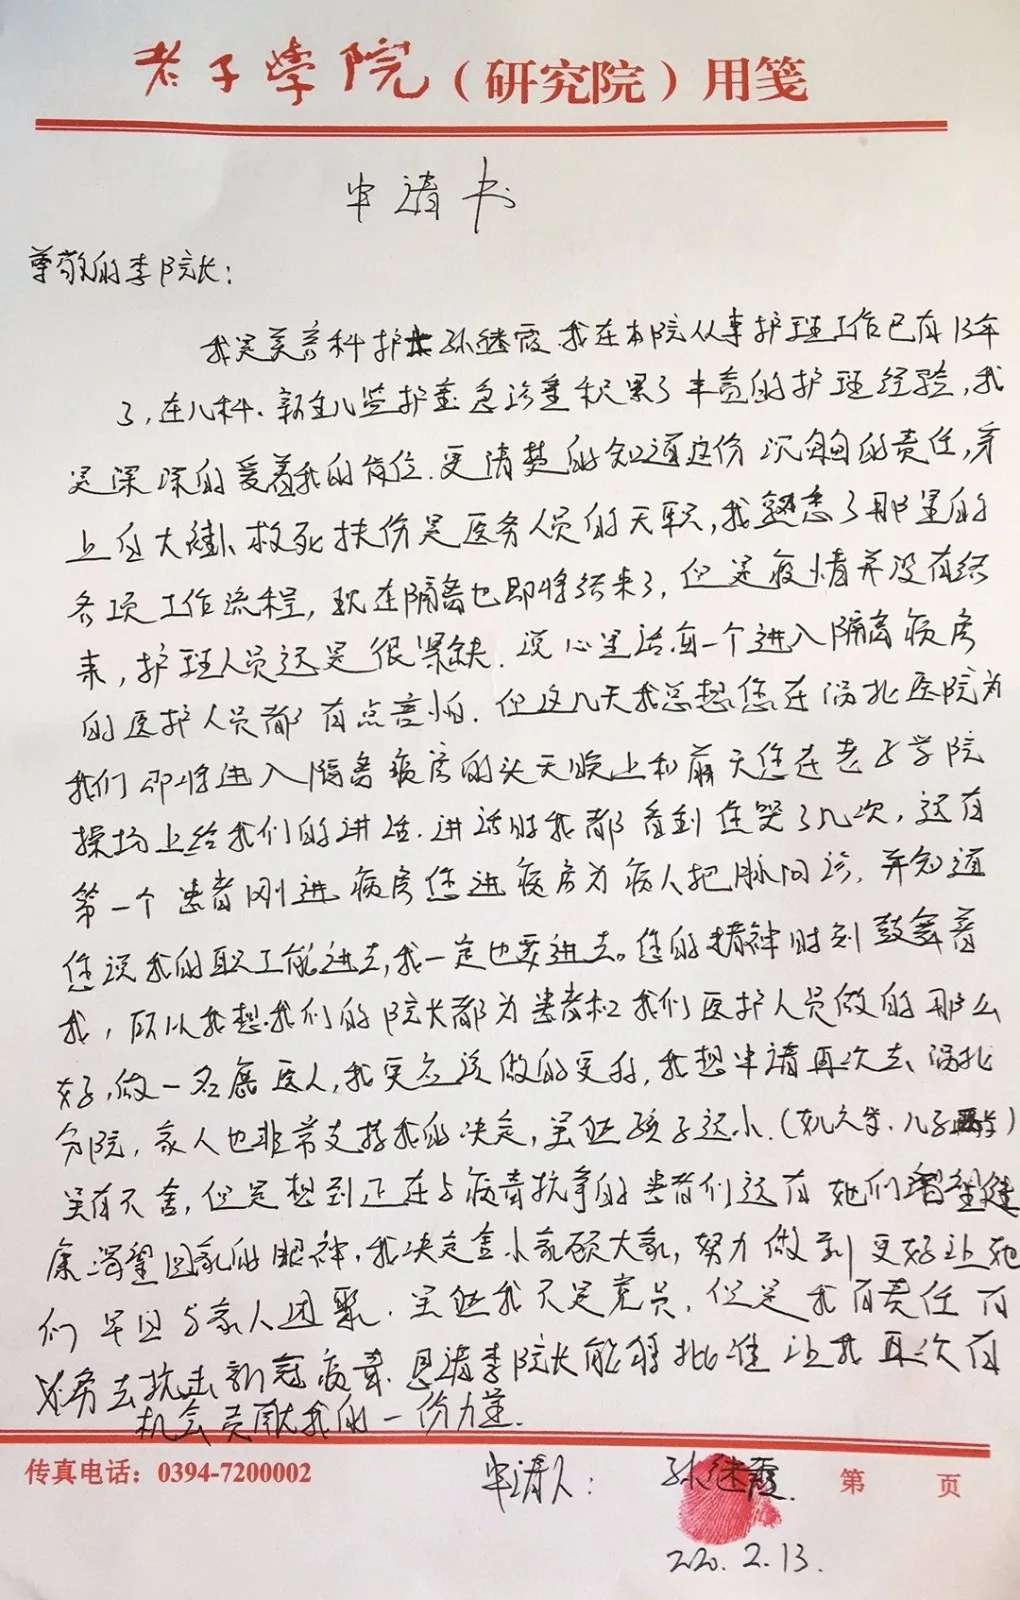 老子学院（研究院）用笺
申请书
尊敬的李院长：
我是美容科护士孙继霞 我在本院从事护理工作已有13年
了，在儿科、新生儿监护室 急诊室积累了丰富的护理经验，我
是深深的爱着我的岗位.更清楚的知道这份沉甸甸的责任，身
上白大褂、救死扶伤是医务人员的天职，我熟悉了那里的
各项工作流程，现在隔离也即将结束了，但是疫情并没有结
束，护理人员还是很紧缺.说心里话每一个进入隔离病房
的医护人员都有点害怕.但这几天我总想您在涡北医院为
我们即将进入隔离病房的头天晚上和前天您在老子学院
操场上给我们的讲话.讲话时我都看到您哭了几次，还有
第一个患者刚进病房您进病房为病人把脉问诊，并知道
您说我的职工能进去，我一定也要进去。您的精神时刻鼓舞着
我，所以我想.我们的院长都为患者和我们医护人员做的那么
好，做一名鹿医人，我更应该做的更好，我想申请再次去涡北
分院，家人也非常支持我的决定，虽然孩子还小.(女儿六岁.儿子)
虽有不舍，但是想到正在与病毒抗争的患者们还有她们渴望健
康渴望回家的眼神，我决定舍小家顾大家，努力做到更好让她
们早日与家人团聚.虽然我不是党员，但是我有责任有
义务去抗击新冠病毒.恳请李院长能够批准让我再次有
机会贡献我的一份力量.
申请人：孙继霞.
2020.2.13.
传真电话：0394-7200002 第 页